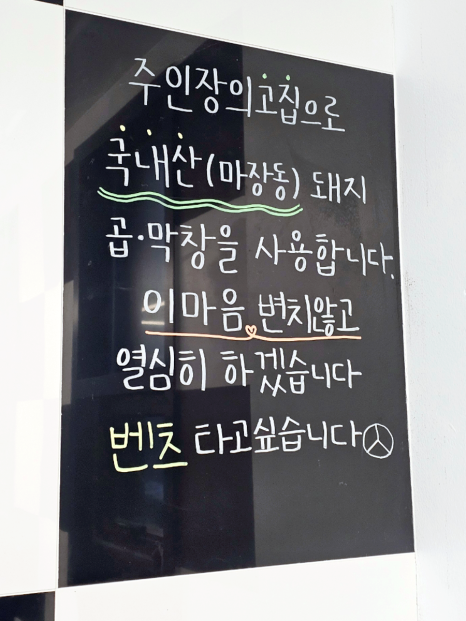 주인장의 고집으로
국내산(마장동) 돼지
곱·막창을 사용합니다.
이마음 변치않고
열심히 하겠습니다
벤츠 타고싶습니다